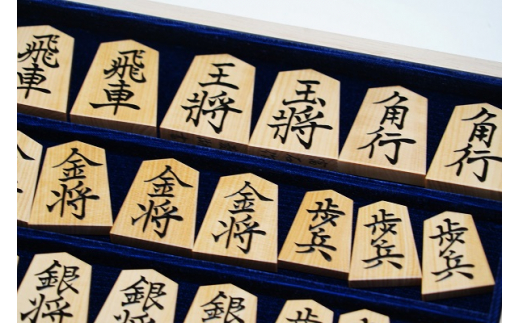 飛車 飛車 王将 玉将 角行 角行
金将 金将 金将 歩兵 歩兵 歩兵
銀将 銀将 銀